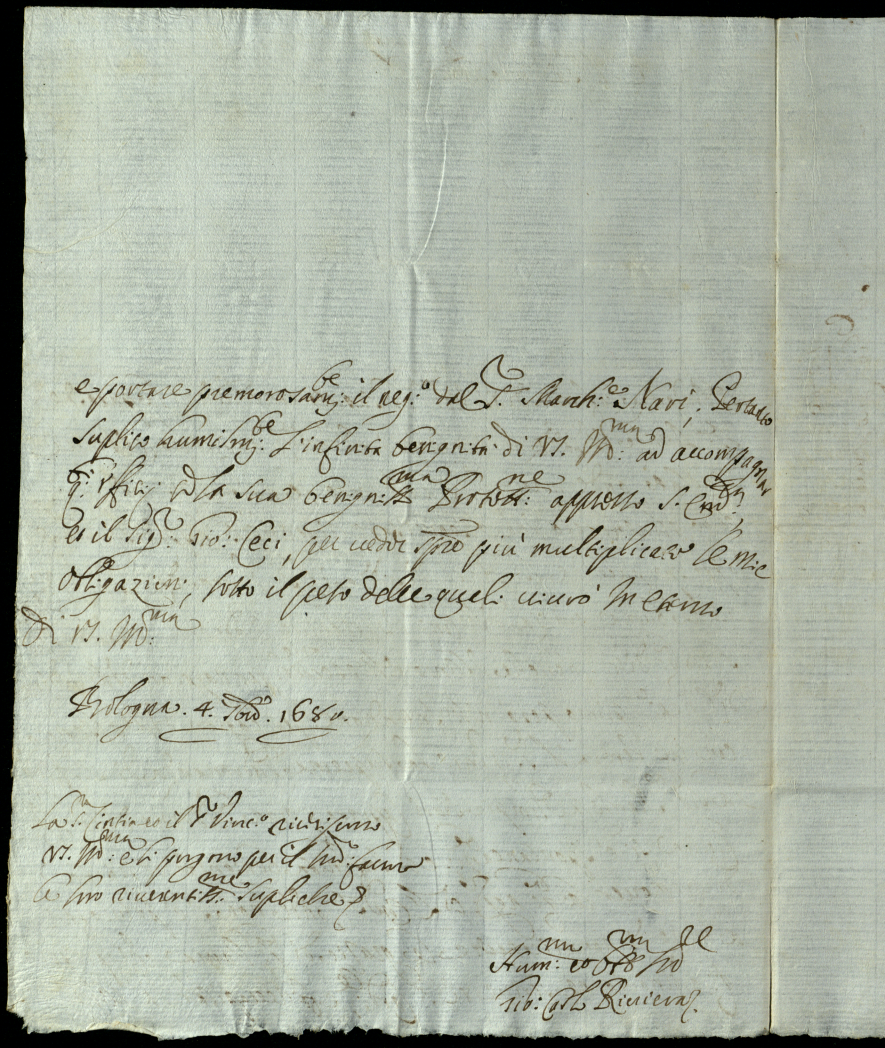 e portare premorosam:be il neg:o dal S.r March:e Nari; Pertanto
suplico humilm:be l'infinita benignità di V.S. Ill:ma ad accompagnar
q:i offici cō la sua benigniss:ma Protett:ne appresso S. Em:za
et il Sig:r Gio: Ceci, per veder sp̄re più multiplicare le mie
obligazioni, sotto il peso delle quali vivrò in eterno
di V.S. Ill:ma
Bologna. 4. 1680.
La S.ra Cintia et il S.r Vinc:o riveriscono
V.S. Ill:ma e li porgono per il
le loro riverentiss:me supliche
Hum:mo et Obb:mo
Gib: Riviera